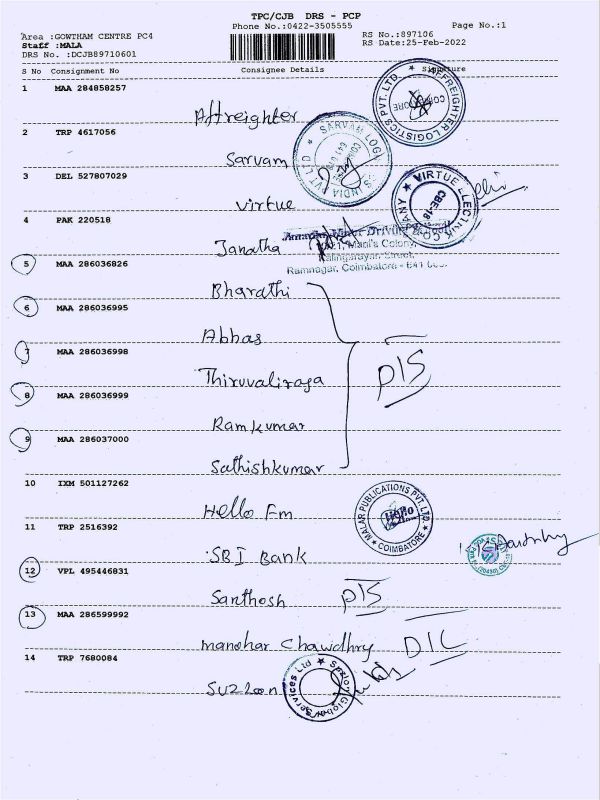 TPC/CJB DRS - PCP
Phone No.:0422-3505555
Page No.:1
Area :GOWTHAM CENTRE PC4
RS No.:897106
Staff :MALA
RS Date:25-Feb-2022
DRS No. :DCJB89710601
S No Consignment No Consignee Details Signature
1 MAA 284858257
Affreighter
AFFREIGHTER LOGISTICS PVT. LTD.
2 TRP 4617056
Sarvam
3 DEL 527807029
Virtue
VIRTUE
CBE-18
4 PAK 220518
Janatha
Mani's Colony,
Street,
Ramnagar, Coimbatore - 641
5 MAA 286036826
Bharathi
6 MAA 286036995
Abhas
7 MAA 286036998
Thiruvaliraja
8 MAA 286036999
Ramkumar
9 MAA 286037000
Sathishkumar
10 IXM 501127262
Hello Fm
MALAR PUBLICATIONS PVT. LTD.
COIMBATORE
11 TRP 2516392
SBI Bank
12 VPL 495446831
Santhosh
13 MAA 286599992
manohar Chawdhry
14 TRP 7680084
Suzloon
Global Services Ltd